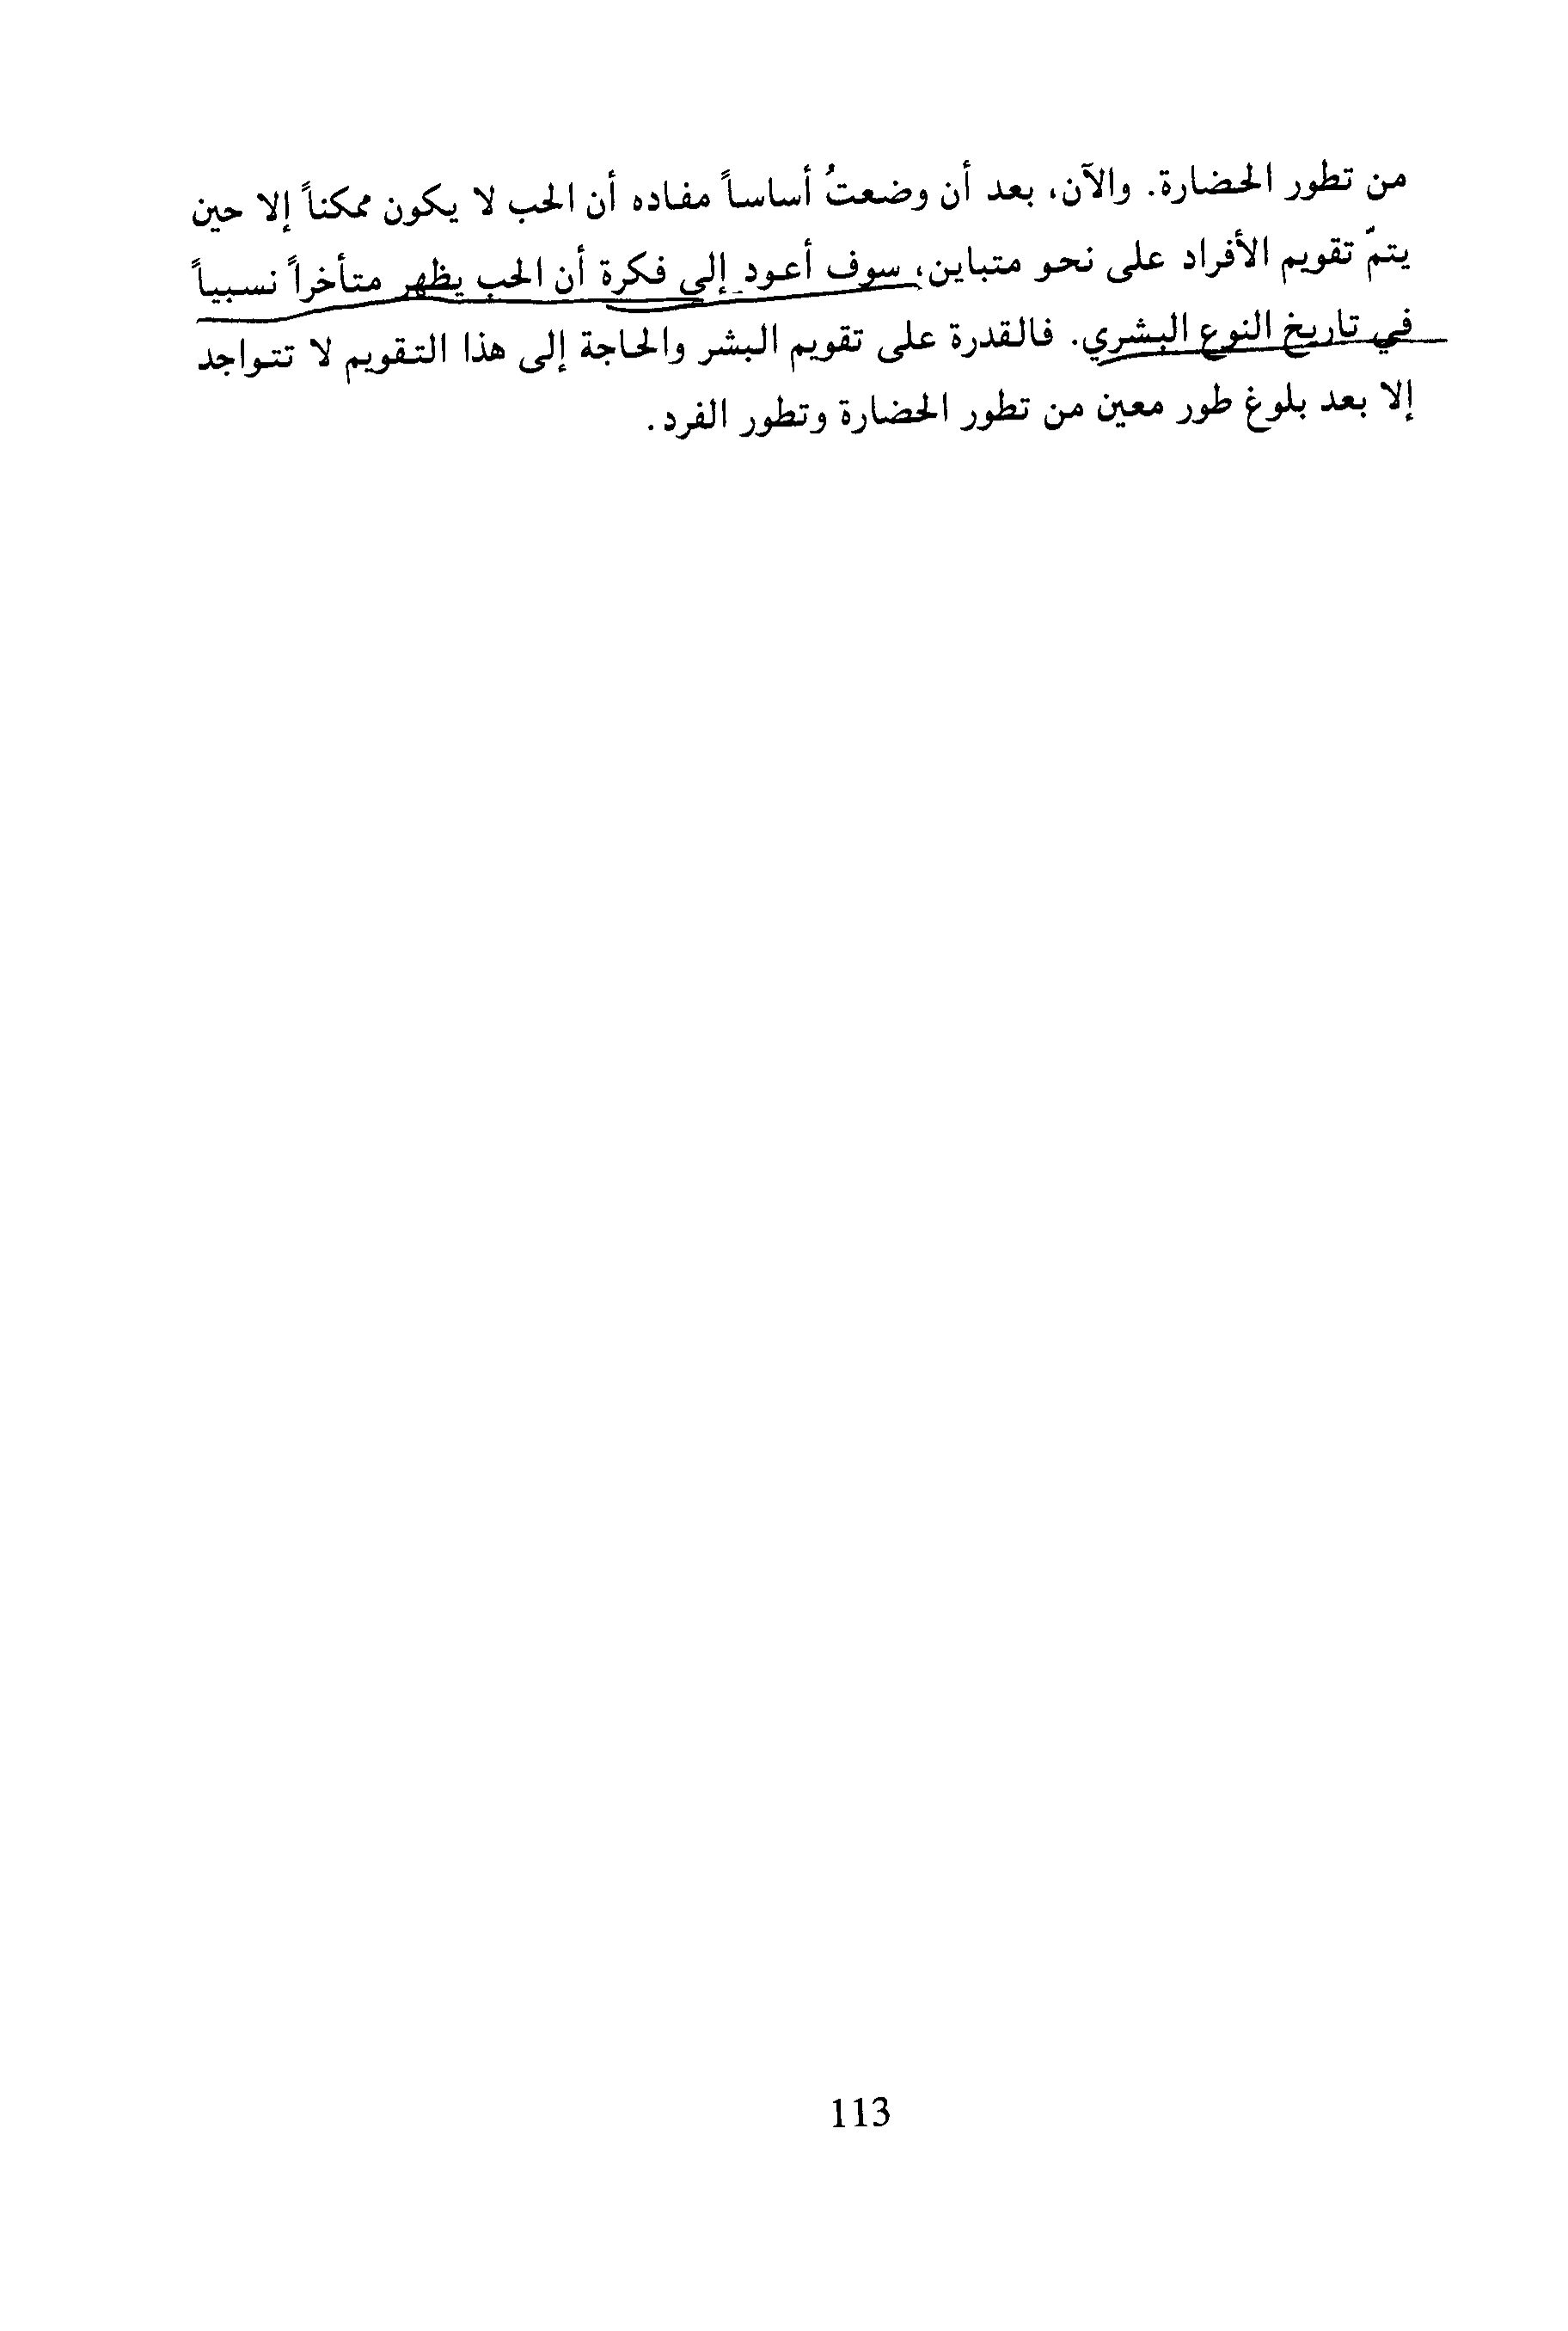 من تطور الحضارة. والآن، بعد أن وضعتُ أساساً مفاده أن الحب لا يكون ممكناً إلا حين
يتمّ تقويم الأفراد على نحو متباين، سوف أعود إلى فكرة أن الحب يظهر متأخراً نسبياً
في تاريخ النوع البشري. فالقدرة على تقويم البشر والحاجة إلى هذا التقويم لا تتواجد
إلا بعد بلوغ طور معين من تطور الحضارة وتطور الفرد.
113